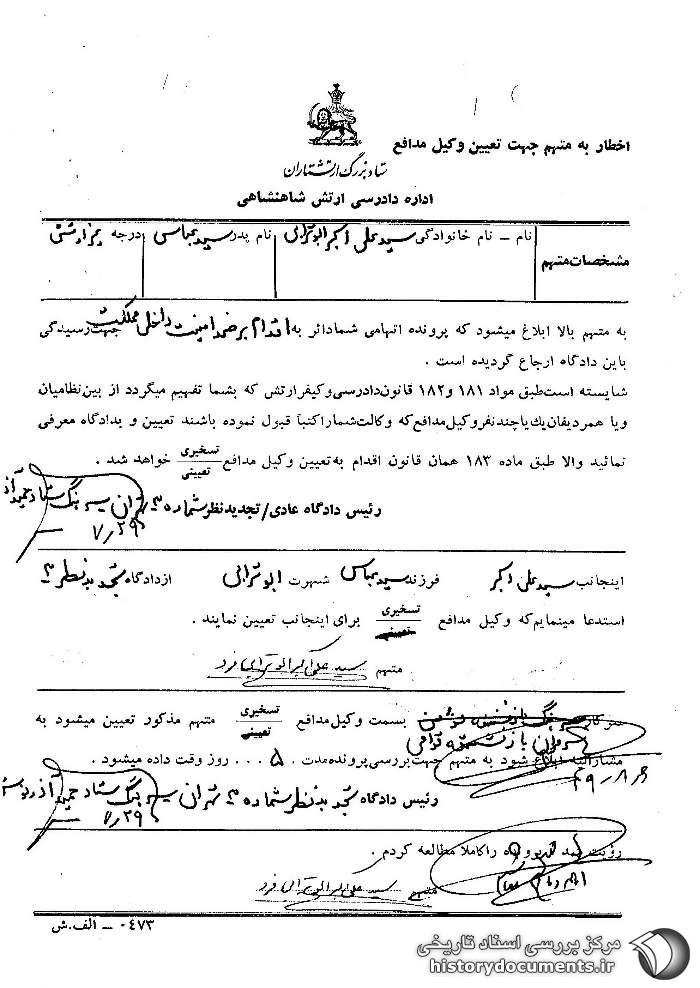 اخطار به متهم جهت تعیین وکیل مدافع
ستاد بزرگ ارتشتاران
اداره دادرسی ارتش شاهنشاهی
مشخصات متهم
نام - نام خانوادگی سید علی اکبر ابوترابی
نام پدر سید عباس
درجه غیر ارتشی
به متهم بالا ابلاغ میشود که پرونده اتهامی شما دائر به اقدام بر ضد امنیت داخلی مملکت جهت رسیدگی
باین دادگاه ارجاع گردیده است .
شایسته است طبق مواد ۱۸۱ و ۱۸۲ قانون دادرسی و کیفر ارتش که بشما تفهیم میگردد از بین نظامیان
و یا همردیفان یک یا چند نفر وکیل مدافع که وکالت شما را کتباً قبول نموده باشند تعیین و بدادگاه معرفی
نمائید والا طبق ماده ۱۸۳ همان قانون اقدام به تعیین وکیل مدافع تسخیری تعیینی خواهد شد .
رئیس دادگاه عادی / تجدید نظر شماره ۳ تهران سرهنگ ستاد حمید
۷/۲۹
اینجانب سید علی اکبر فرزند سید عباس شهرت ابوترابی از دادگاه تجدید نظر ۳
استدعا مینمایم که وکیل مدافع تسخیری تعیینی برای اینجانب تعیین نمایند .
متهم سید علی اکبر ابوترابی فرد
سرکار سرهنگ بازنشسته بسمت وکیل مدافع تسخیری تعیینی متهم مذکور تعیین میشود به
مشارالیه ابلاغ شود به متهم جهت بررسی پرونده مدت . ۵ ... روز وقت داده میشود .
رئیس دادگاه تجدید نظر شماره ۳ تهران سرهنگ ستاد حمید
۷/۲۹
رؤیت شد پرونده را کاملا مطالعه کردم .
متهم سید علی اکبر ابوترابی فرد
۰۴۷۳ - الف.ش
مرکز بررسی اسناد تاریخی
historydocuments.ir